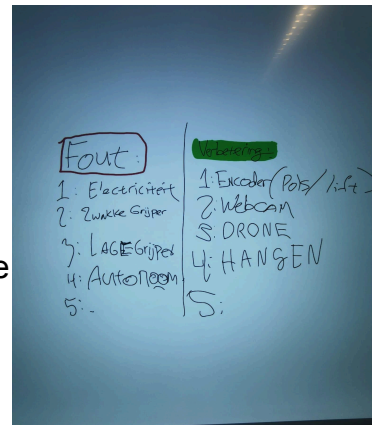 e
Fout:
1: Electriciteit
2: Zwakke Grijper
3: LAGE Grijper
4: Autonoom
5: -
Verbetering:
1: Encoder (Pols/lift)
2: Webcam
3. DRONE
4: HANGEN
5: